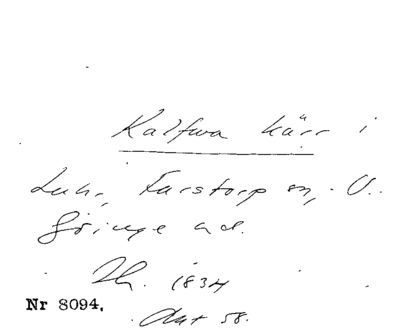 Kalfwa kärr i
Luhr, Farstorp sn, V.
Göinge hd.
Th. 1834
Akt 58.
Nr 8094.